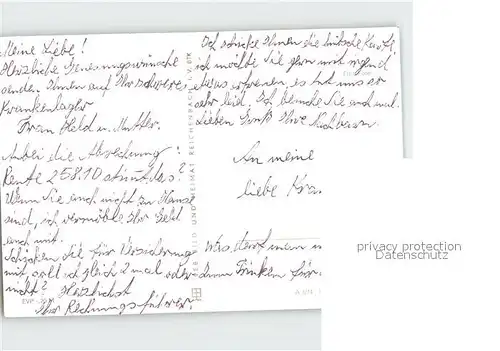 Meine Liebe!
Herzliche Genesungswünsche
senden Ihnen auf Ihr schweres
Krankenlager
Frau Held u. Mutter.
Anbei die Abrechnung:
Rente 258.10 stimt das?
Wenn Sie auch nicht zu Hause
sind, ich verwalte Ihr Geld
auch mit.
Schicken die für Versicherung
mit, soll ich gleich 2 mal oder
nicht? Herzlichst
Ihr Rechnungsführer.
Ich schicke Ihnen die hübsche Karte,
ich möchte Sie gern mit irgend
etwas erfreuen, es tut uns so
sehr leid. Ich besuche Sie auch mal.
Lieben Gruß Ihre Nachbarn.
An meine
liebe
Was darf man
zum Trinken für
BILD UND HEIMAT REICHENBACH I. V.
EVP
privacy protection
Datenschutz